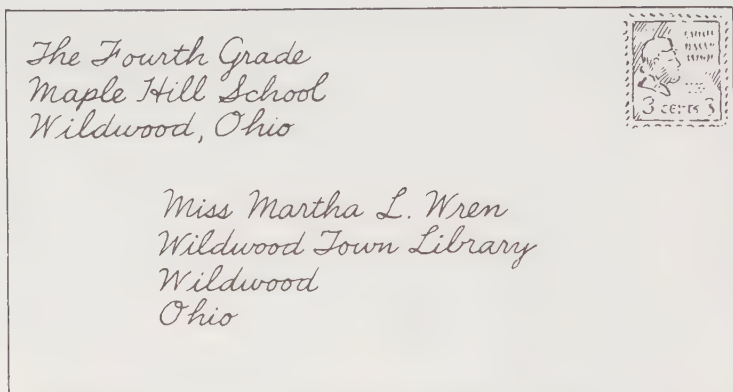 The Fourth Grade
Maple Hill School
Wildwood, Ohio
3 cents 3
Miss Martha L. Wren
Wildwood Town Library
Wildwood
Ohio